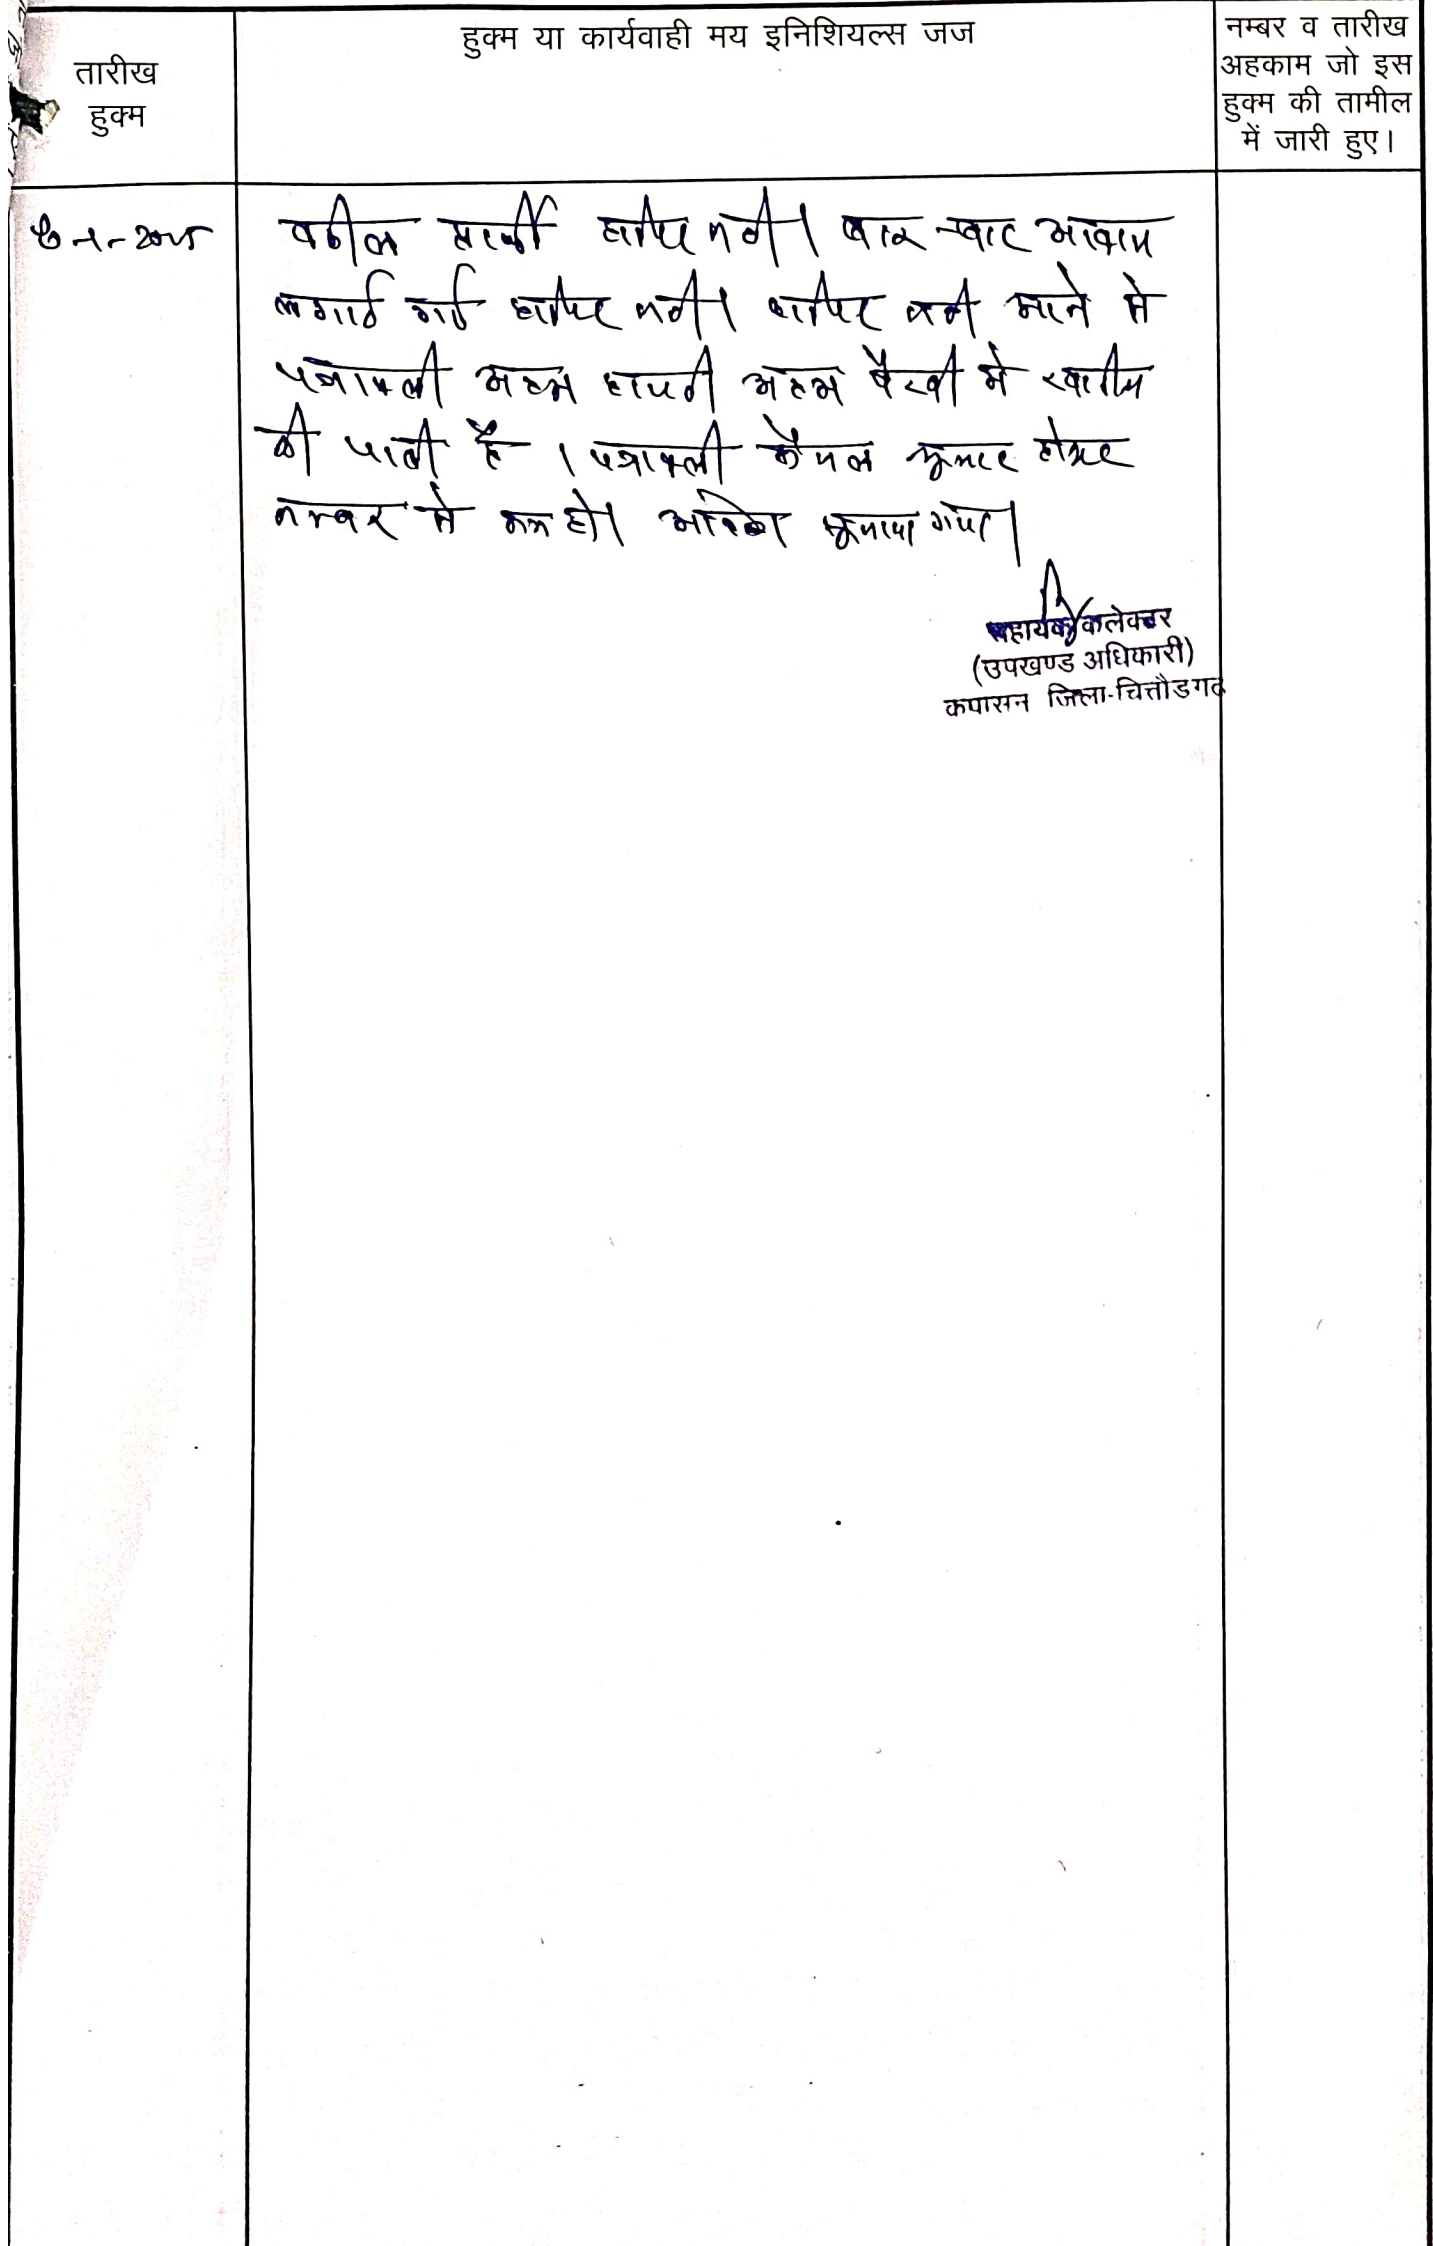 तारीख
हुक्म
हुक्म या कार्यवाही मय इनिशियल्स जज
नम्बर व तारीख
अहकाम जो इस
हुक्म की तामील
में जारी हुए।
वकील प्रार्थी हाजिर नही। बार-बार आवाज
लगाई गई हाजिर नही। हाजिर नही आने से
पत्रावली अदम हाजरी अदम पैरवी मे खारीज
की जाती है। पत्रावली फैसल शुमार होकर
नम्बर से कम हो। आदेश सुनाया गया।
सहायक कलेक्टर
(उपखण्ड अधिकारी)
कपासन जिला-चित्तौडगढ